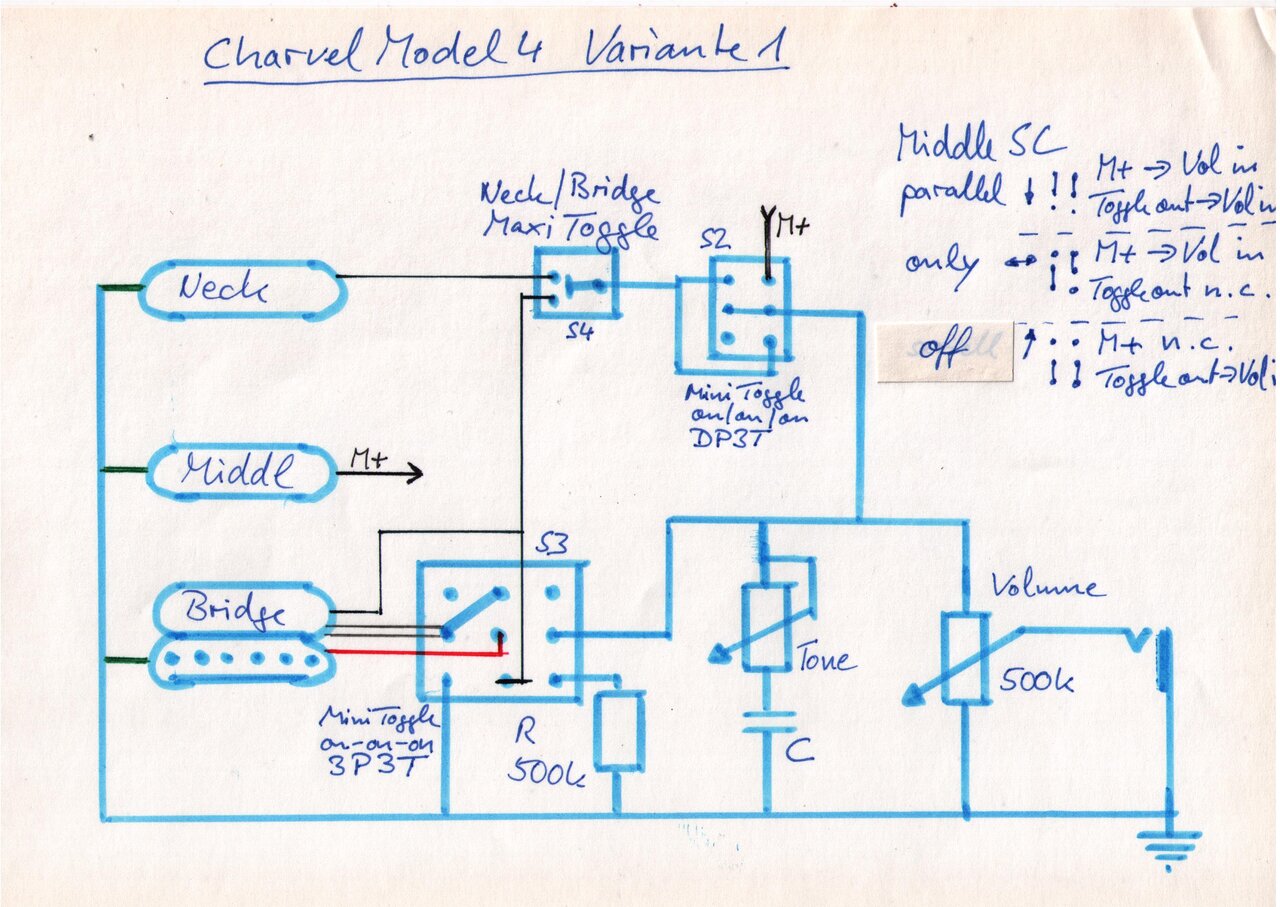 Charvel Model 4 Variante 1
Middle SC
parallel ↓ M+ → Vol in
Toggle out → Vol in
only ↔ M+ → Vol in
Toggle out n.c.
off ↑ M+ n.c.
Toggle out → Vol i
Neck/Bridge
Maxi Toggle
S4
S2
M+
Mini Toggle
on/on/on
DP3T
Neck
Middl
M+
Bridge
S3
Mini Toggle
on-on-on
3P3T
R
500k
Tone
C
Volume
500k